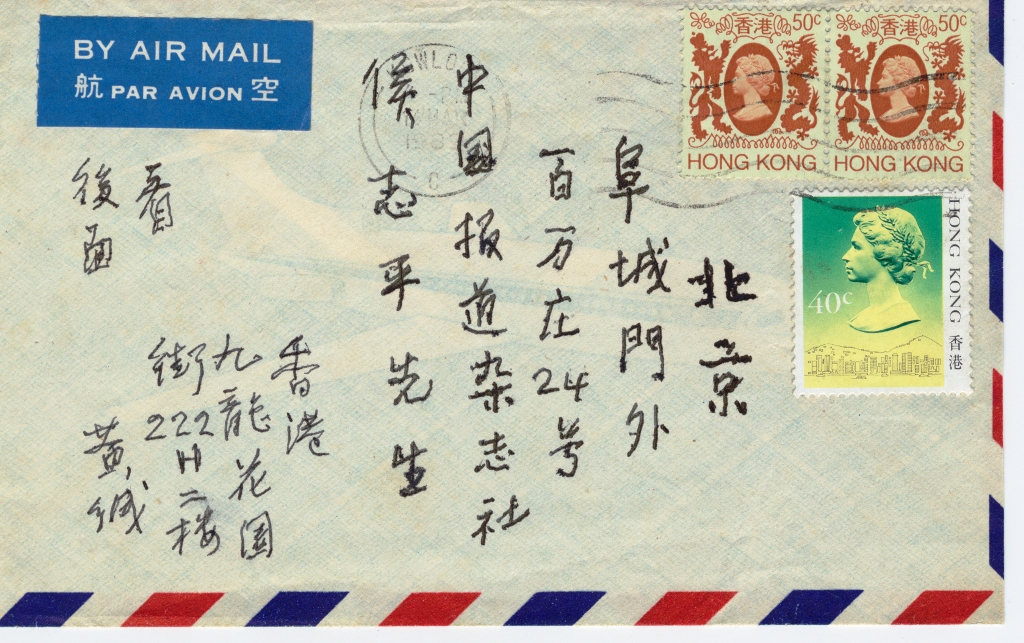 BY AIR MAIL
航 PAR AVION 空
香港 50c
HONG KONG
香港 50c
HONG KONG
40c
HONG KONG 香港
北京
阜城門外
百万庄24号
中国报道杂志社
侯志平先生
看
後面
香港
九龍花園
街222H二楼
黄